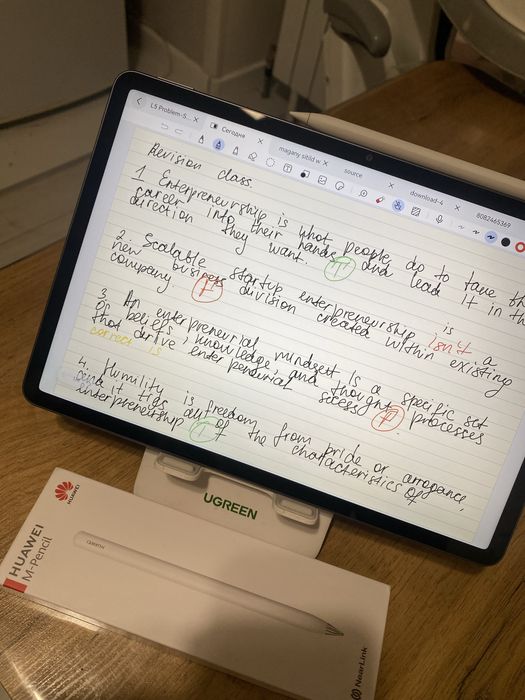 L5 Problem-S...
Сегодня
magany sitild w
source
download-4
8082465369
Revision class.
1. Enterpreneurship is what people do to take th
career into their hands and lead it in the
direction they want. T
2. Scalable startup enterpreneurship is
isn't a
new business division created within existing
company. F
3. An enterpreneurial mindset is a specific set
of beliefs, knowledge, and thought processes
that drive enterpenurial sucess. F
correct is
4. Humility is freedom from pride or arrogance,
and it ties of the characteristics of
interpreneurship. T
UGREEN
HUAWEI
HUAWEI
M-Pencil
HUAWEI
NearLink